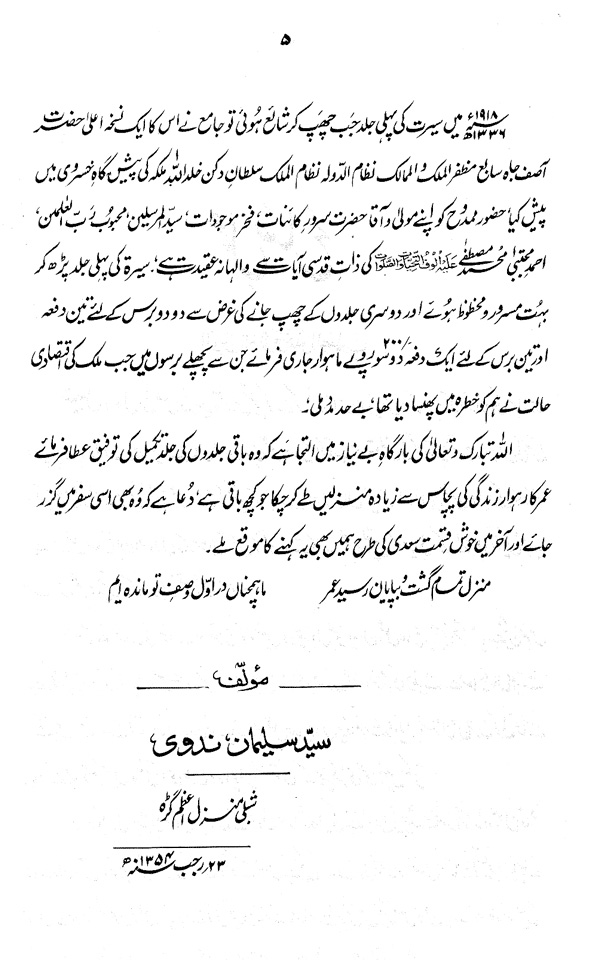 ۵
۱۹۱۸ء ۱۳۳۶ھ میں سیرت کی پہلی جلد جب چھپ کر شائع ہوئی تو جامع نے اس کا ایک نسخہ اعلیٰ حضرت
آصف جاہ سابع مظفر الملک والممالک نظام الدولہ نظام الملک سلطان دکن خلد اللہ ملکہ کی پیش گاہ خسروی میں
پیش کیا، حضور ممدوح کو اپنے مولیٰ و آقا حضرت سرور کائنات، فخر موجودات، سید المرسلین، محبوب رب العٰلمین،
احمد مجتبیٰ محمد مصطفیٰ علیہ الوف التحیات والصلوات کی ذاتِ قدسی آیات سے والہانہ عقیدت ہے، سیرۃ کی پہلی جلد پڑھ کر
بہت مسرور و محظوظ ہوئے اور دوسری جلدوں کے چھپ جانے کی غرض سے دو دو برس کے لئے تین دفعہ
اور تین برس کے لئے ایک دفعہ دو سو ۲۰۰/ روپے ماہوار جاری فرمائے جن سے پچھلے برسوں میں جب ملک کی اقتصادی
حالت نے ہم کو خطرہ میں پھنسا دیا تھا، بے حد مدد ملی،
اللہ تبارک وتعالیٰ کی بارگاہِ بے نیاز میں التجا ہے کہ وہ باقی جلدوں کی جلد تکمیل کی توفیق عطا فرمائے
عمر کا رہوار زندگی کی پچاس سے زیادہ منزلیں طے کر چکا جو کچھ باقی ہے، دعا ہے کہ وہ بھی اسی سفر میں گزر
جائے اور آخر میں خوش قسمت سعدی کی طرح ہمیں بھی یہ کہنے کا موقع ملے۔
منزل تمام گشت و بپایان رسید عمر ما ہمچناں در اول وصفِ تو ماندہ ایم
مؤلف
سید سلیمان ندوی
شبلی منزل اعظم گڑہ
۲۳؍ رجب سنہ ۱۳۵۴ھ